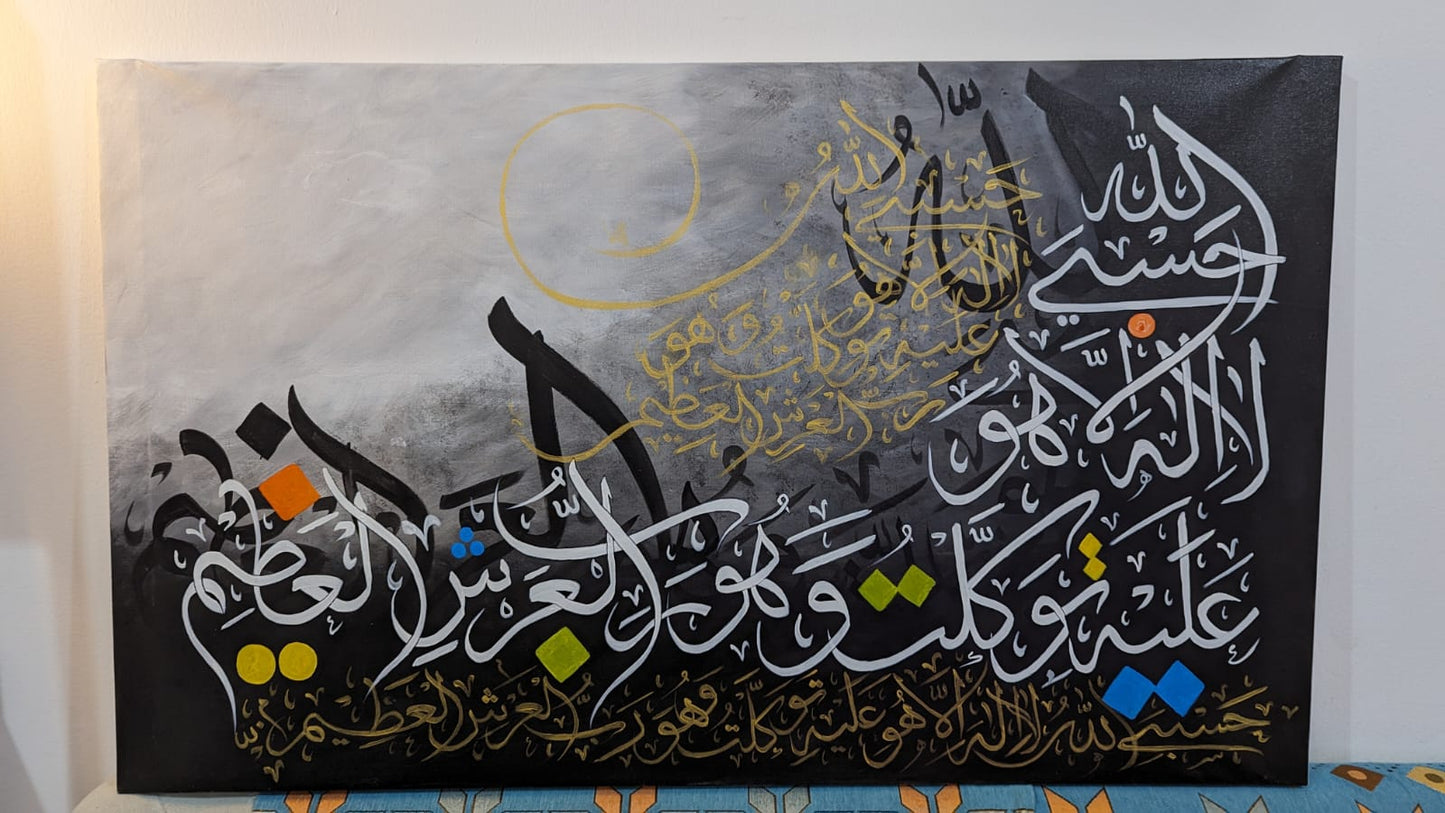 حَسْبِيَ اللّٰهُ
لَا إِلٰهَ إِلَّا هُوَ
عَلَيْهِ تَوَكَّلْتُ وَهُوَ رَبُّ الْعَرْشِ الْعَظِيمِ
حَسْبِيَ اللّٰهُ
لَا إِلٰهَ إِلَّا هُوَ
عَلَيْهِ تَوَكَّلْتُ وَهُوَ
رَبُّ الْعَرْشِ الْعَظِيمِ
حَسْبِيَ اللّٰهُ لَا إِلٰهَ إِلَّا هُوَ عَلَيْهِ تَوَكَّلْتُ وَهُوَ رَبُّ الْعَرْشِ الْعَظِيمِ